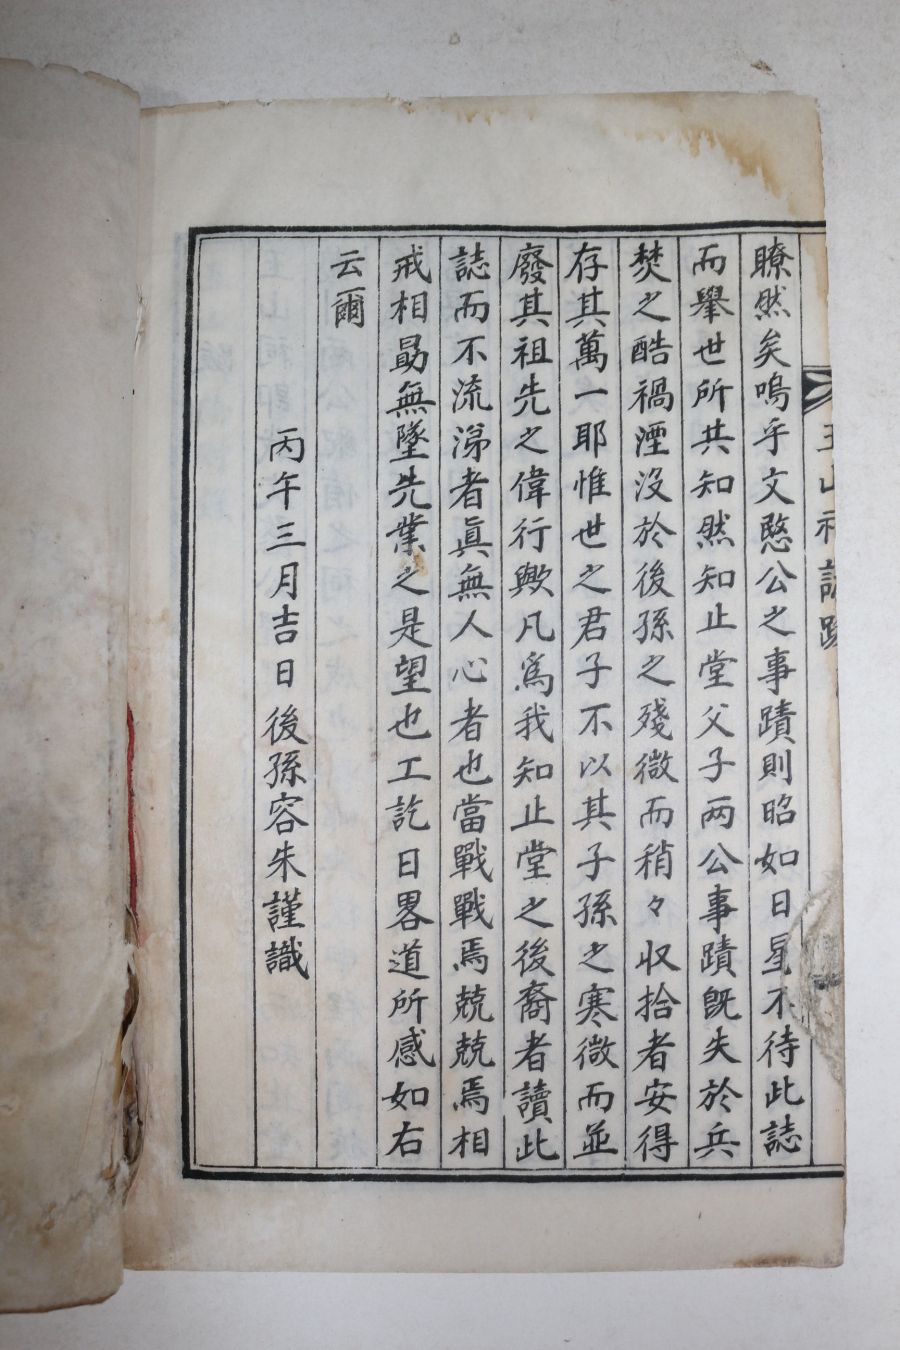 玉山祠誌蹟
瞭然矣嗚乎文愍公之事蹟則昭如日星不待此誌
而擧世所共知然知止堂父子两公事蹟旣失於兵
焚之酷禍湮沒於後孫之殘微而稍々収拾者安得
存其萬一耶惟世之君子不以其子孫之寒微而並
廢其祖先之偉行歟凡爲我知止堂之後裔者讀此
誌而不流涕者眞無人心者也當戰戰焉兢兢焉相
戒相勗無墜先業之是望也工訖日畧道所感如右
云爾
丙午三月吉日後孫容朱謹識